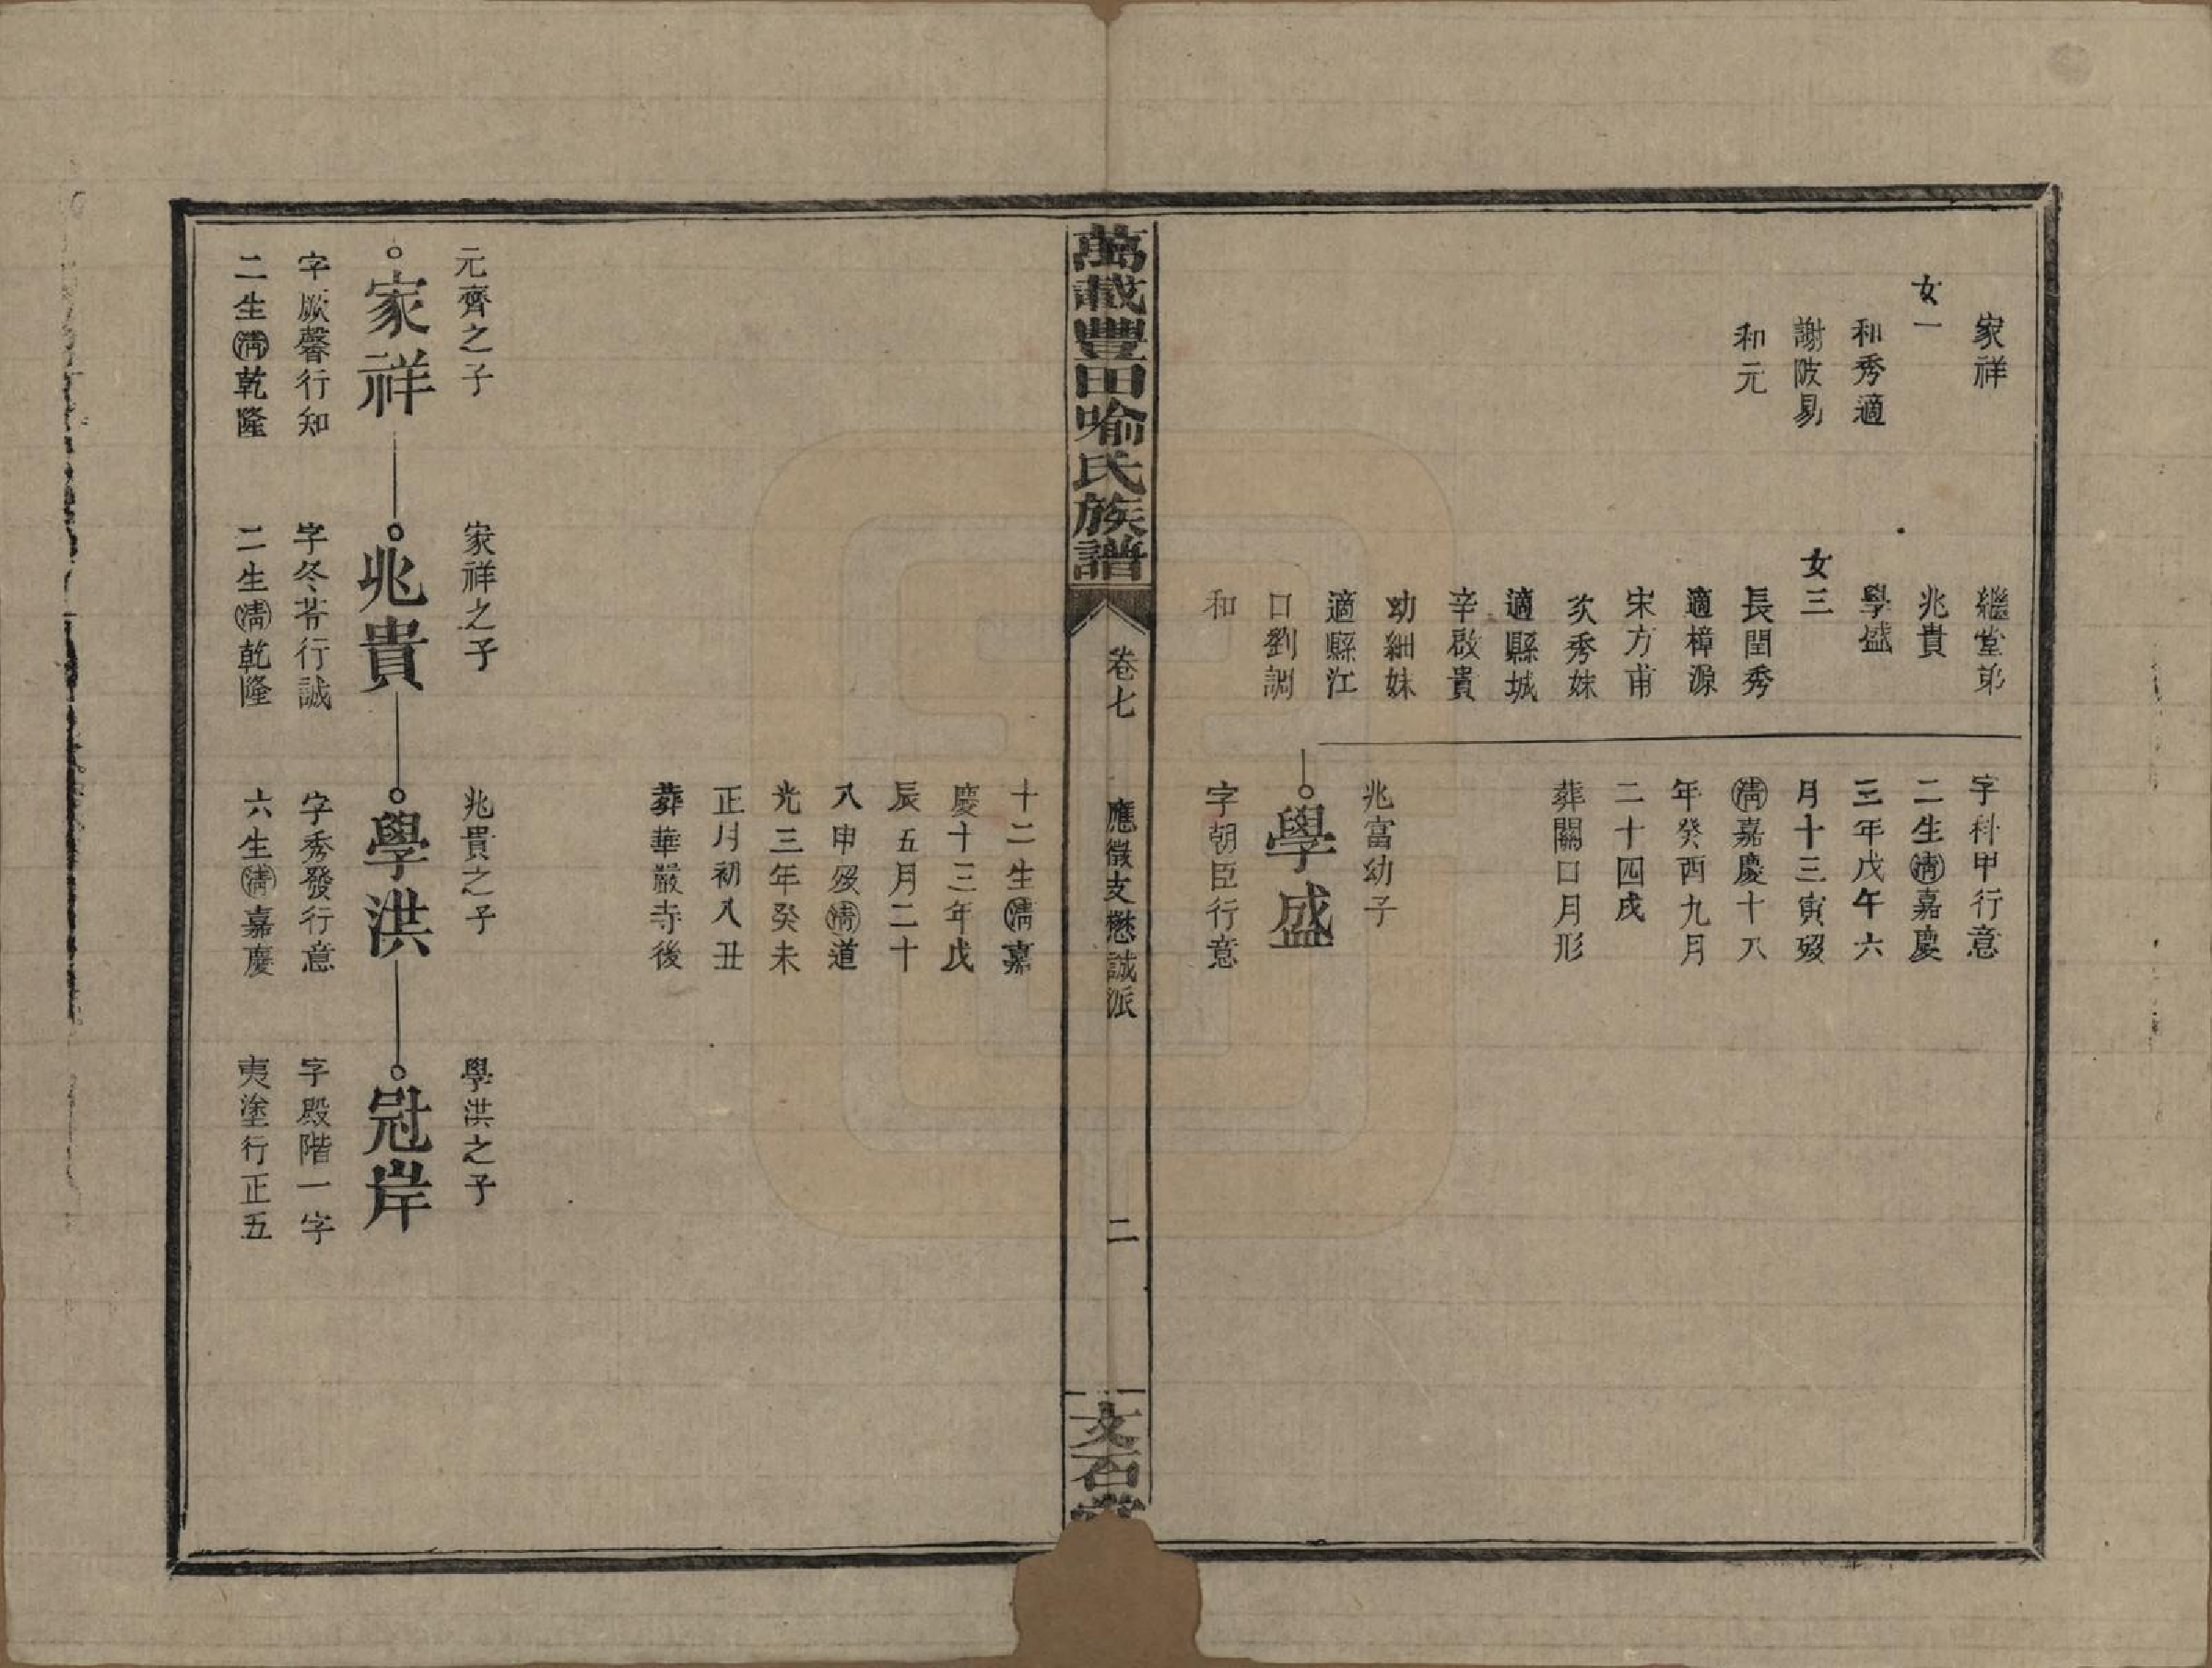 家祥
女一
和秀適
謝陂易
和元
繼堂弟
兆貴
學盛
女三
長閏秀
適樟源
宋方甫
次秀妹
適縣城
辛啟貴
幼細妹
適縣江
口劉調
和
字科甲行意
二生清嘉慶
三年戊午六
月十三寅歿
清嘉慶十八
年癸酉九月
二十四戌
葬關口月形
兆富幼子
學盛
字朝臣行意
萬載豐田喻氏族譜
卷七
應徵支懋誠派
二
文石堂
十二生清嘉
慶十三年戊
辰五月二十
八申歿清道
光三年癸未
正月初八丑
葬華嚴寺後
元齊之子
家祥
字厥馨行知
二生清乾隆
家祥之子
兆貴
字冬行誠
二生清乾隆
兆貴之子
學洪
字秀發行意
六生清嘉慶
學洪之子
冠岸
字殿階一字
夷塗行正五